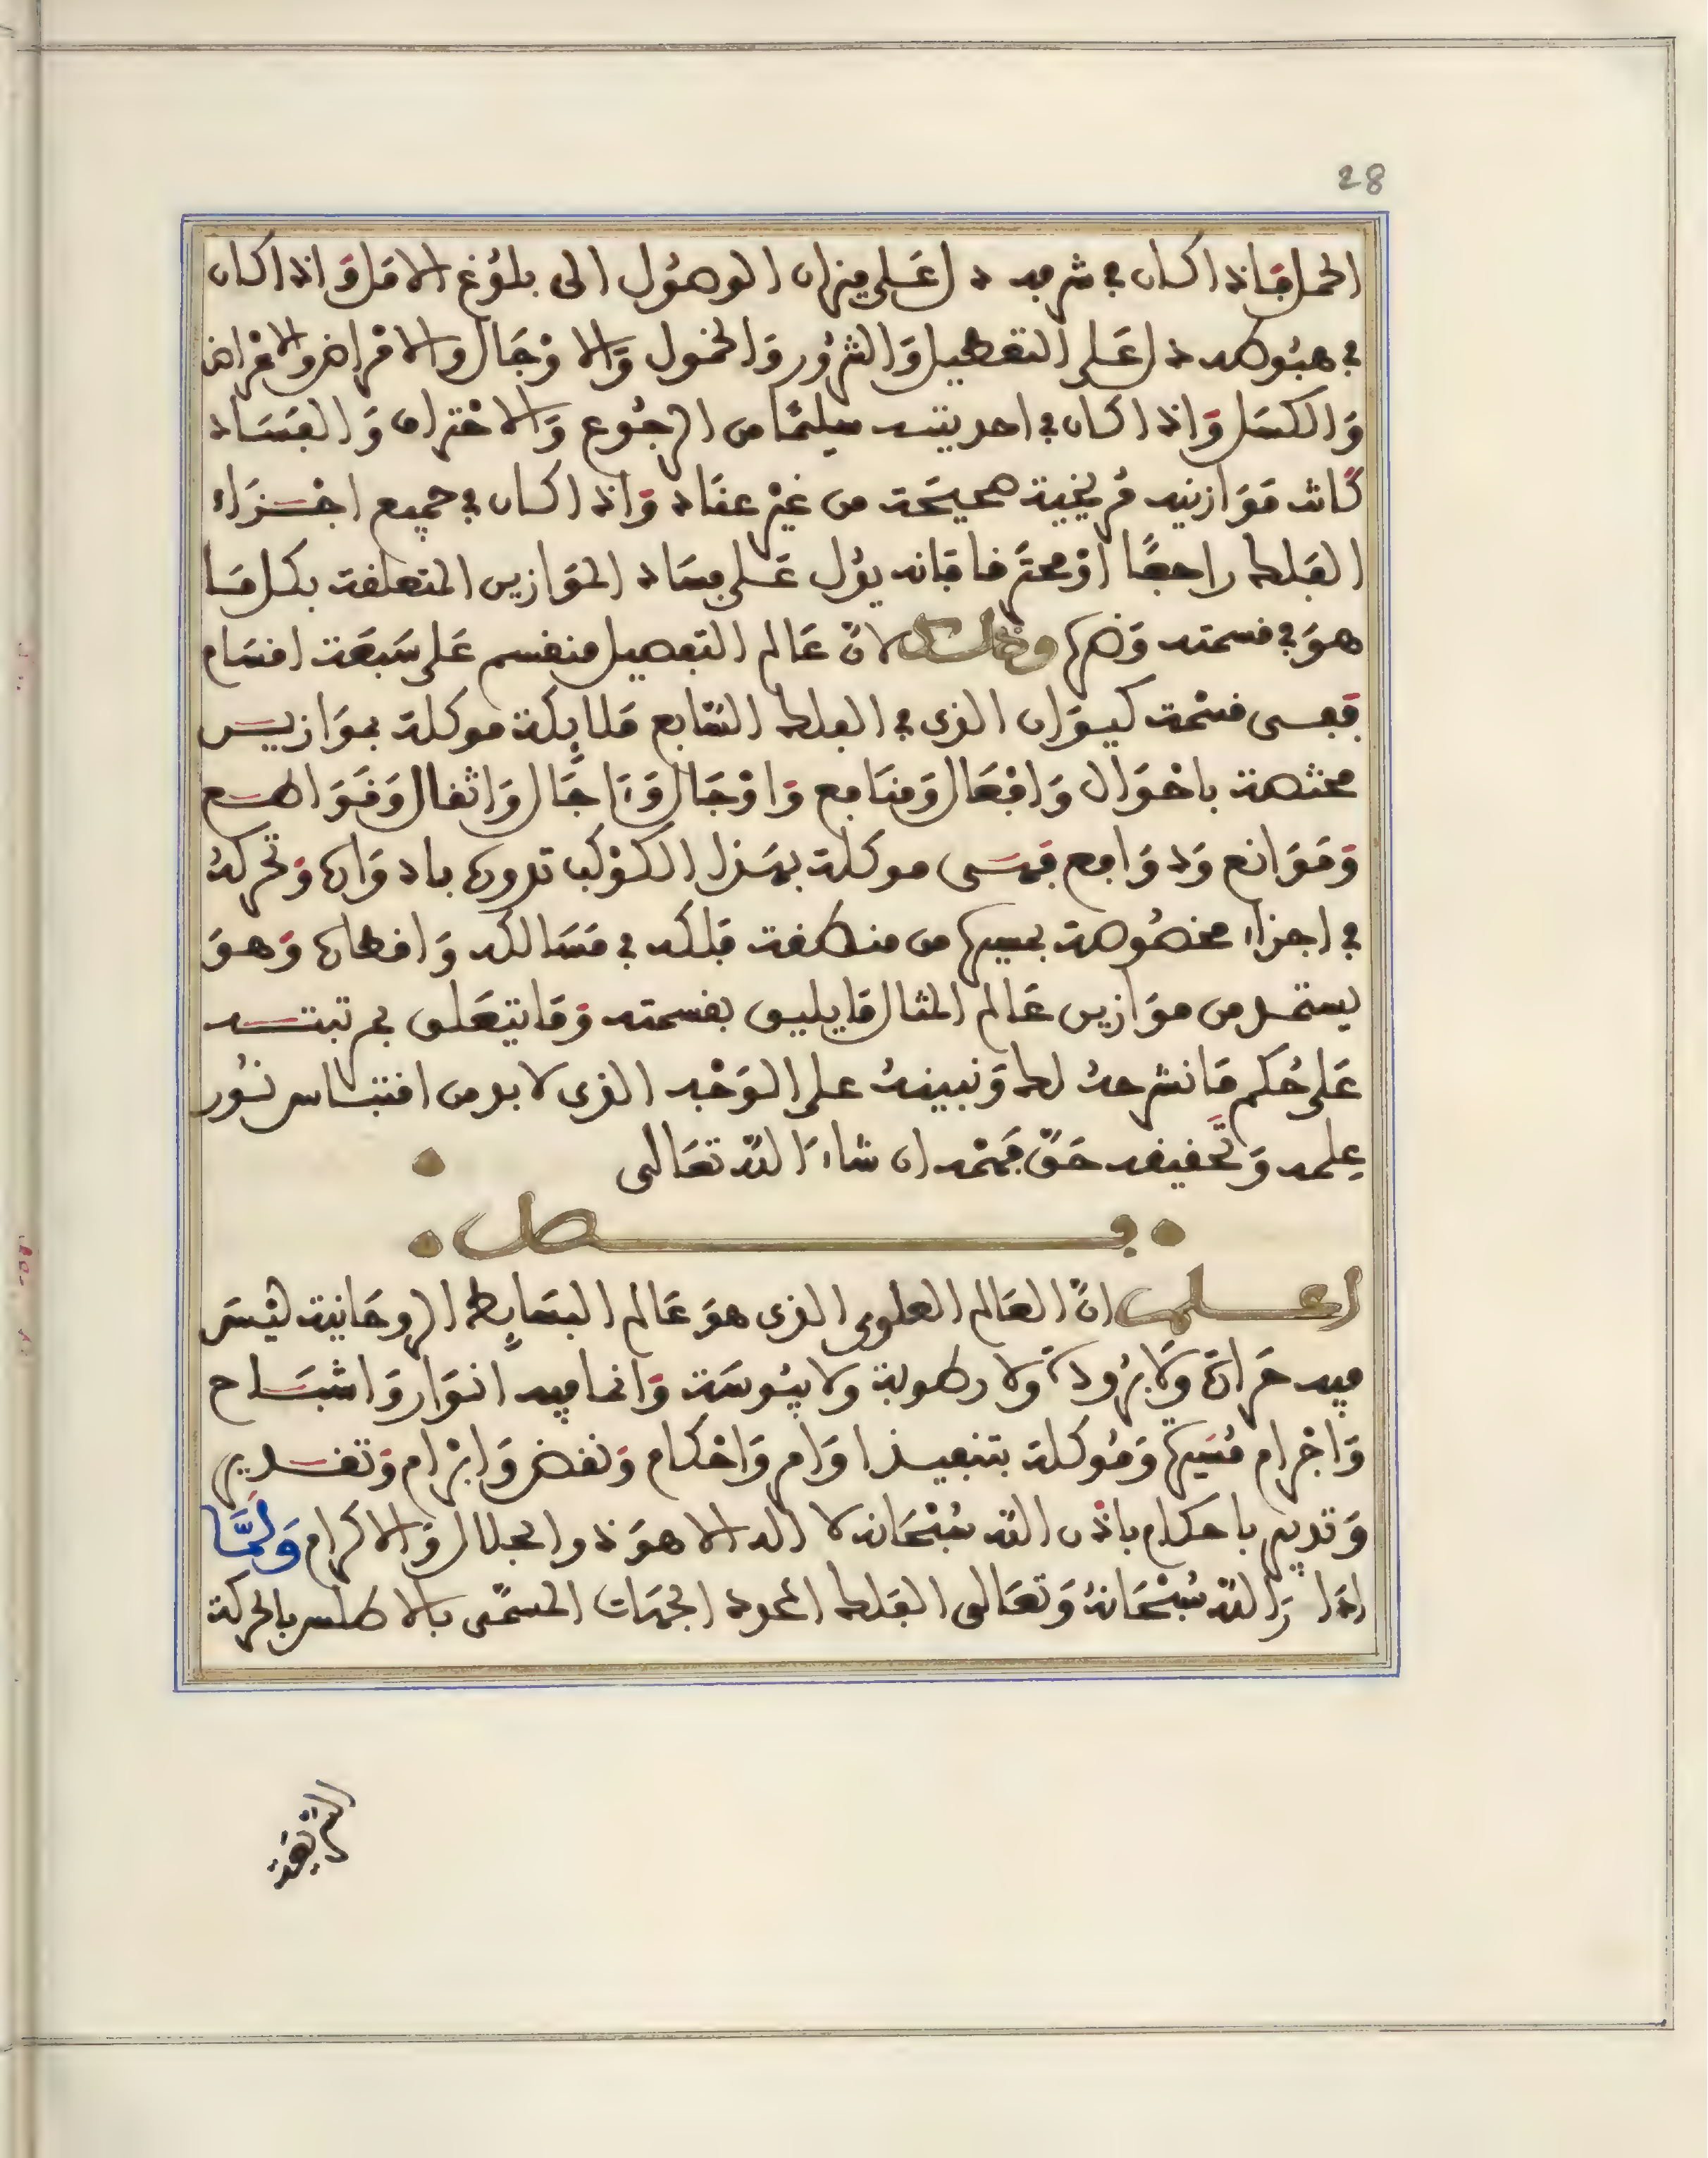 28
الحمل فاذا كان في شرفه دل على ميزان الوصُول الى بلوُغ الامَل وَاذا كان
في هبُوطه دل عَلى التعطيل وَالشرُور وَالخمول وَالاوْجَال والامْراض والاغْراض
وَالكسَل وَاذا كان في احد بيتيه سليمًا من الرجُوع وَالاحْتراق وَالفسَاد
كانت مَوَازنيه مُريخية صحيحَة من غيْر عنَاد وَاذا كان في جميع اجْزَاء
الفَلك راجعًا اوْ محترَقا فانه يدُل عَلى فسَاد الموَازين المتعلقة بكل مَا
هوَ في قسمته وَضرها وذلك لانّ عَالم التفصيل منقسم عَلى سَبعَة اقسَام
ففى قسْمة كيوَان الذى في الفلك السَّابع مَلايكة موكلة بموَازيـن
مختصة باحْوَال وَافعَال وَمنَافع وَاوْجَال وَءَاجَال وَاثقال وَقوَاطـع
وَمَوَانع وَدوَافع فهَى موكلة بهَذا الكوْكب تدوره بادوَاره وَتحركهُ
في اجزاء مخصُوصة بسيرها من منطقة فلكه في مَسَالكه وَاقطاره وَهوَ
يستمـد من موَازين عَالم المثال مَا يليق بقسمته وَمَا يتعَلق بمرتبتـه
عَلى حُكم مَا نشرحهُ لك وَنبينهُ على الوَجْه الذى لا بد من اقتبـاس نُور
عِلمه وَتحقيقه حَقّ فَهْمه ان شاءَ اللهُ تعَالى
فصل
اعلـم انّ العَالم العلوى الذى هوَ عَالم البسَايط الروحَانية ليْسَ
فيه حَرارَة وَلا برُودَة وَلا رطوبة ولا يبُوسَة وَانما فيه انوَار وَاشبَاح
وَاجْرام مُسَيرة وَمُوكلة بتنفيـذ اوَامر وَاحْكام وَنقض وَابْرَام وَتقديـر
وَتدبير باحكام باذن الله سُبْحَانه لا اله الا هوَ ذو الجلال وَالاكرام وَلمَّا
ادَارَ اللهُ سُبْحَانهُ وَتعَالى الفَلك المحدد الجهَات المسمّى بالاطلس بالحركة
الشريفة